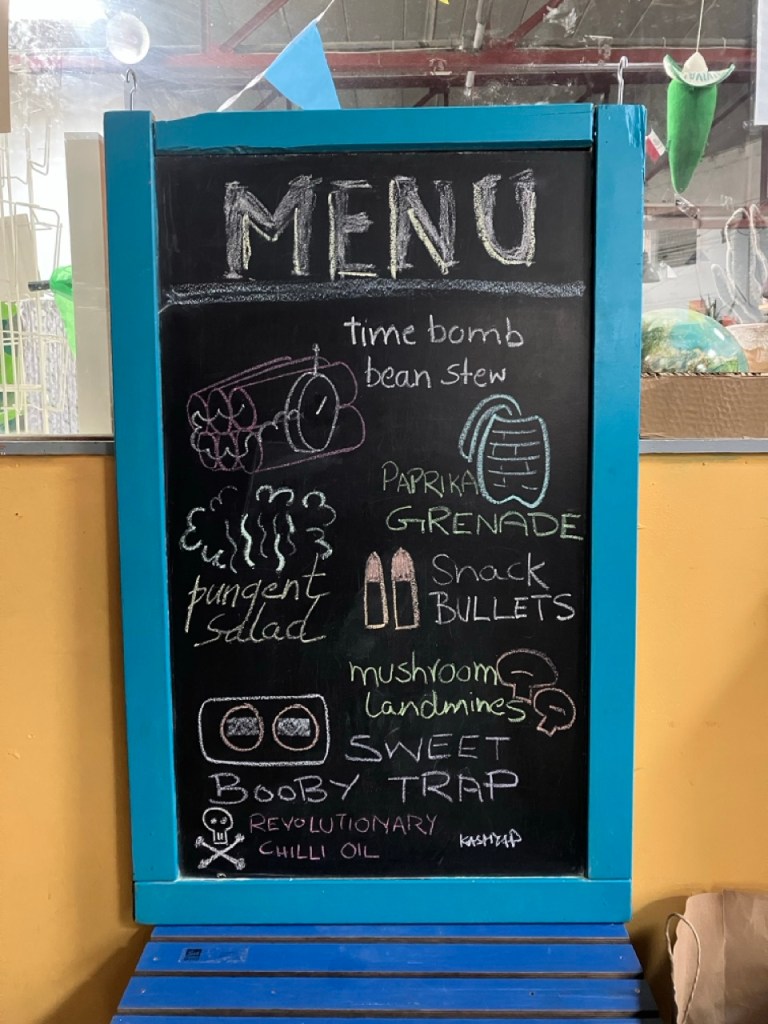 MENU
time bomb
bean stew
PAPRIKA
GRENADE
pungent
salad
Snack
BULLETS
mushroom
landmines
SWEET
BOOBY TRAP
REVOLUTIONARY
CHILLI OIL
KASHYAP